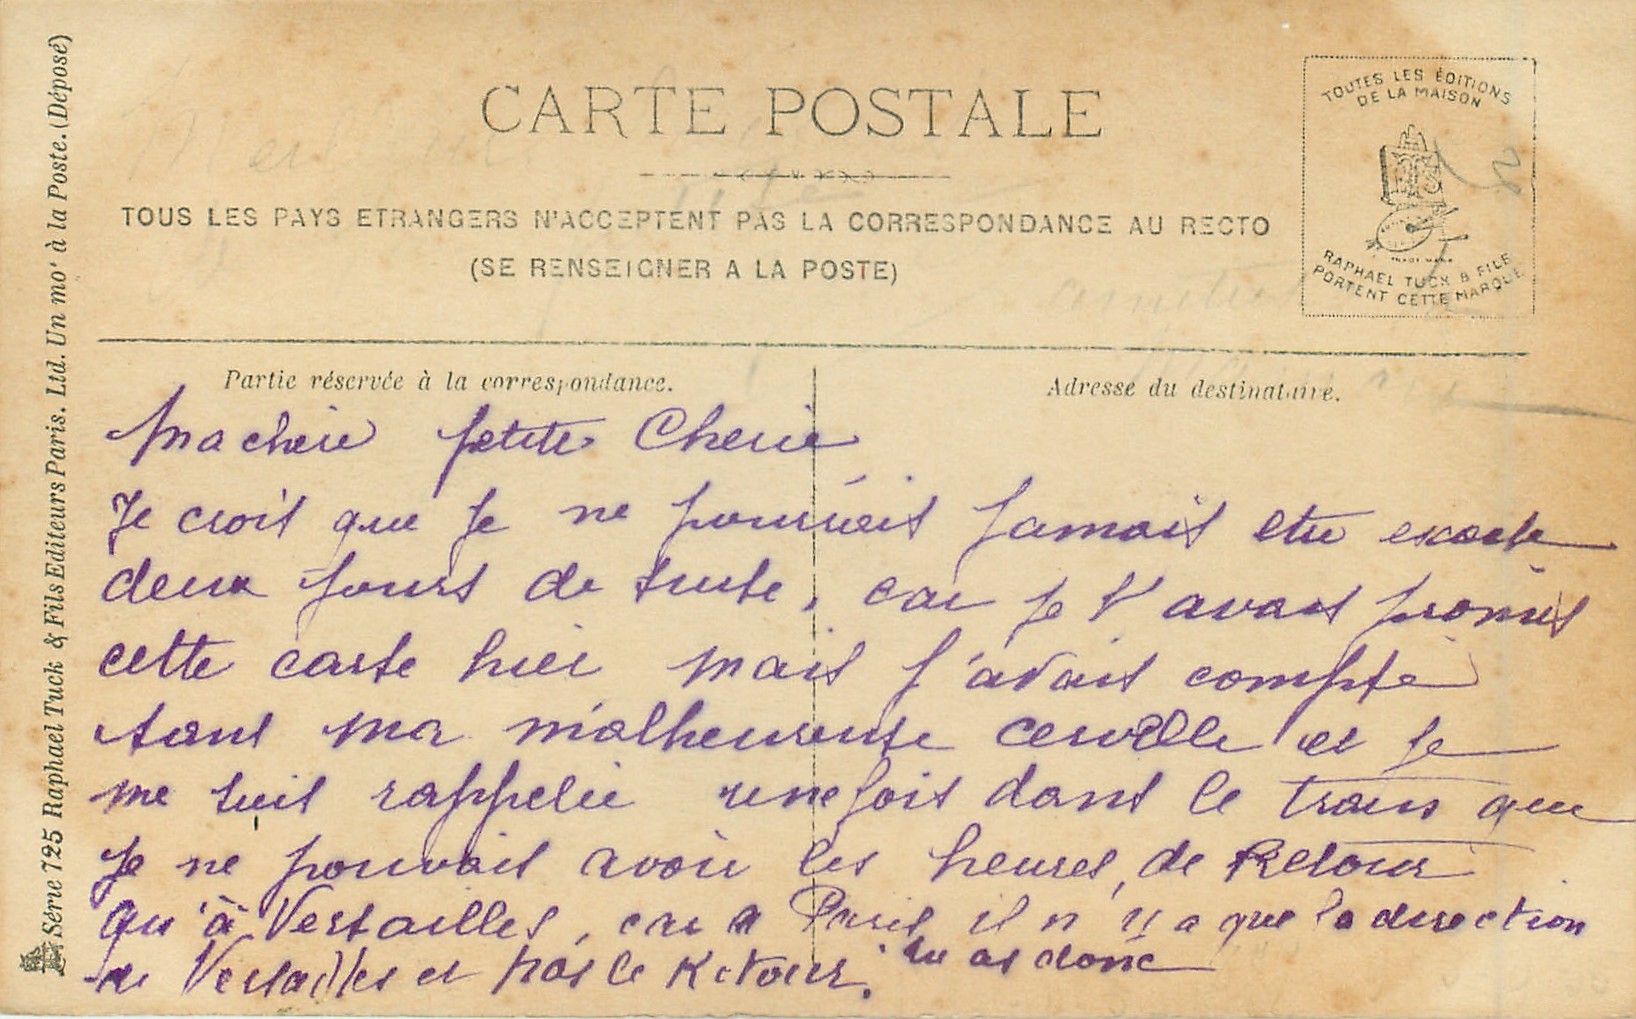 CARTE POSTALE
TOUS LES PAYS ETRANGERS N'ACCEPTENT PAS LA CORRESPONDANCE AU RECTO
(SE RENSEIGNER A LA POSTE)
TOUTES LES ÉDITIONS
DE LA MAISON
TRADE MARK
RAPHAEL TUCK & FILS
PORTENT CETTE MARQUE
Série 725 Raphael Tuck & Fils Editeurs Paris. Ltd. Un mot à la Poste. (Déposé)
Partie réservée à la correspondance.
Adresse du destinataire.
Ma chérie petite Cherie
Je croit que je ne pourrait jamait etre exacte
deux jours de suite, car je t'avait promis
cette carte hier mais j'avait compté
sans ma malheureuse cervelle et je
me suit rappelée une fois dans le train que
je ne pouvait avoir les heures de Retour
qu'à Versailles, car a Paris il n'y a que la direction
de Versailles et pas le Retour. tu as donc